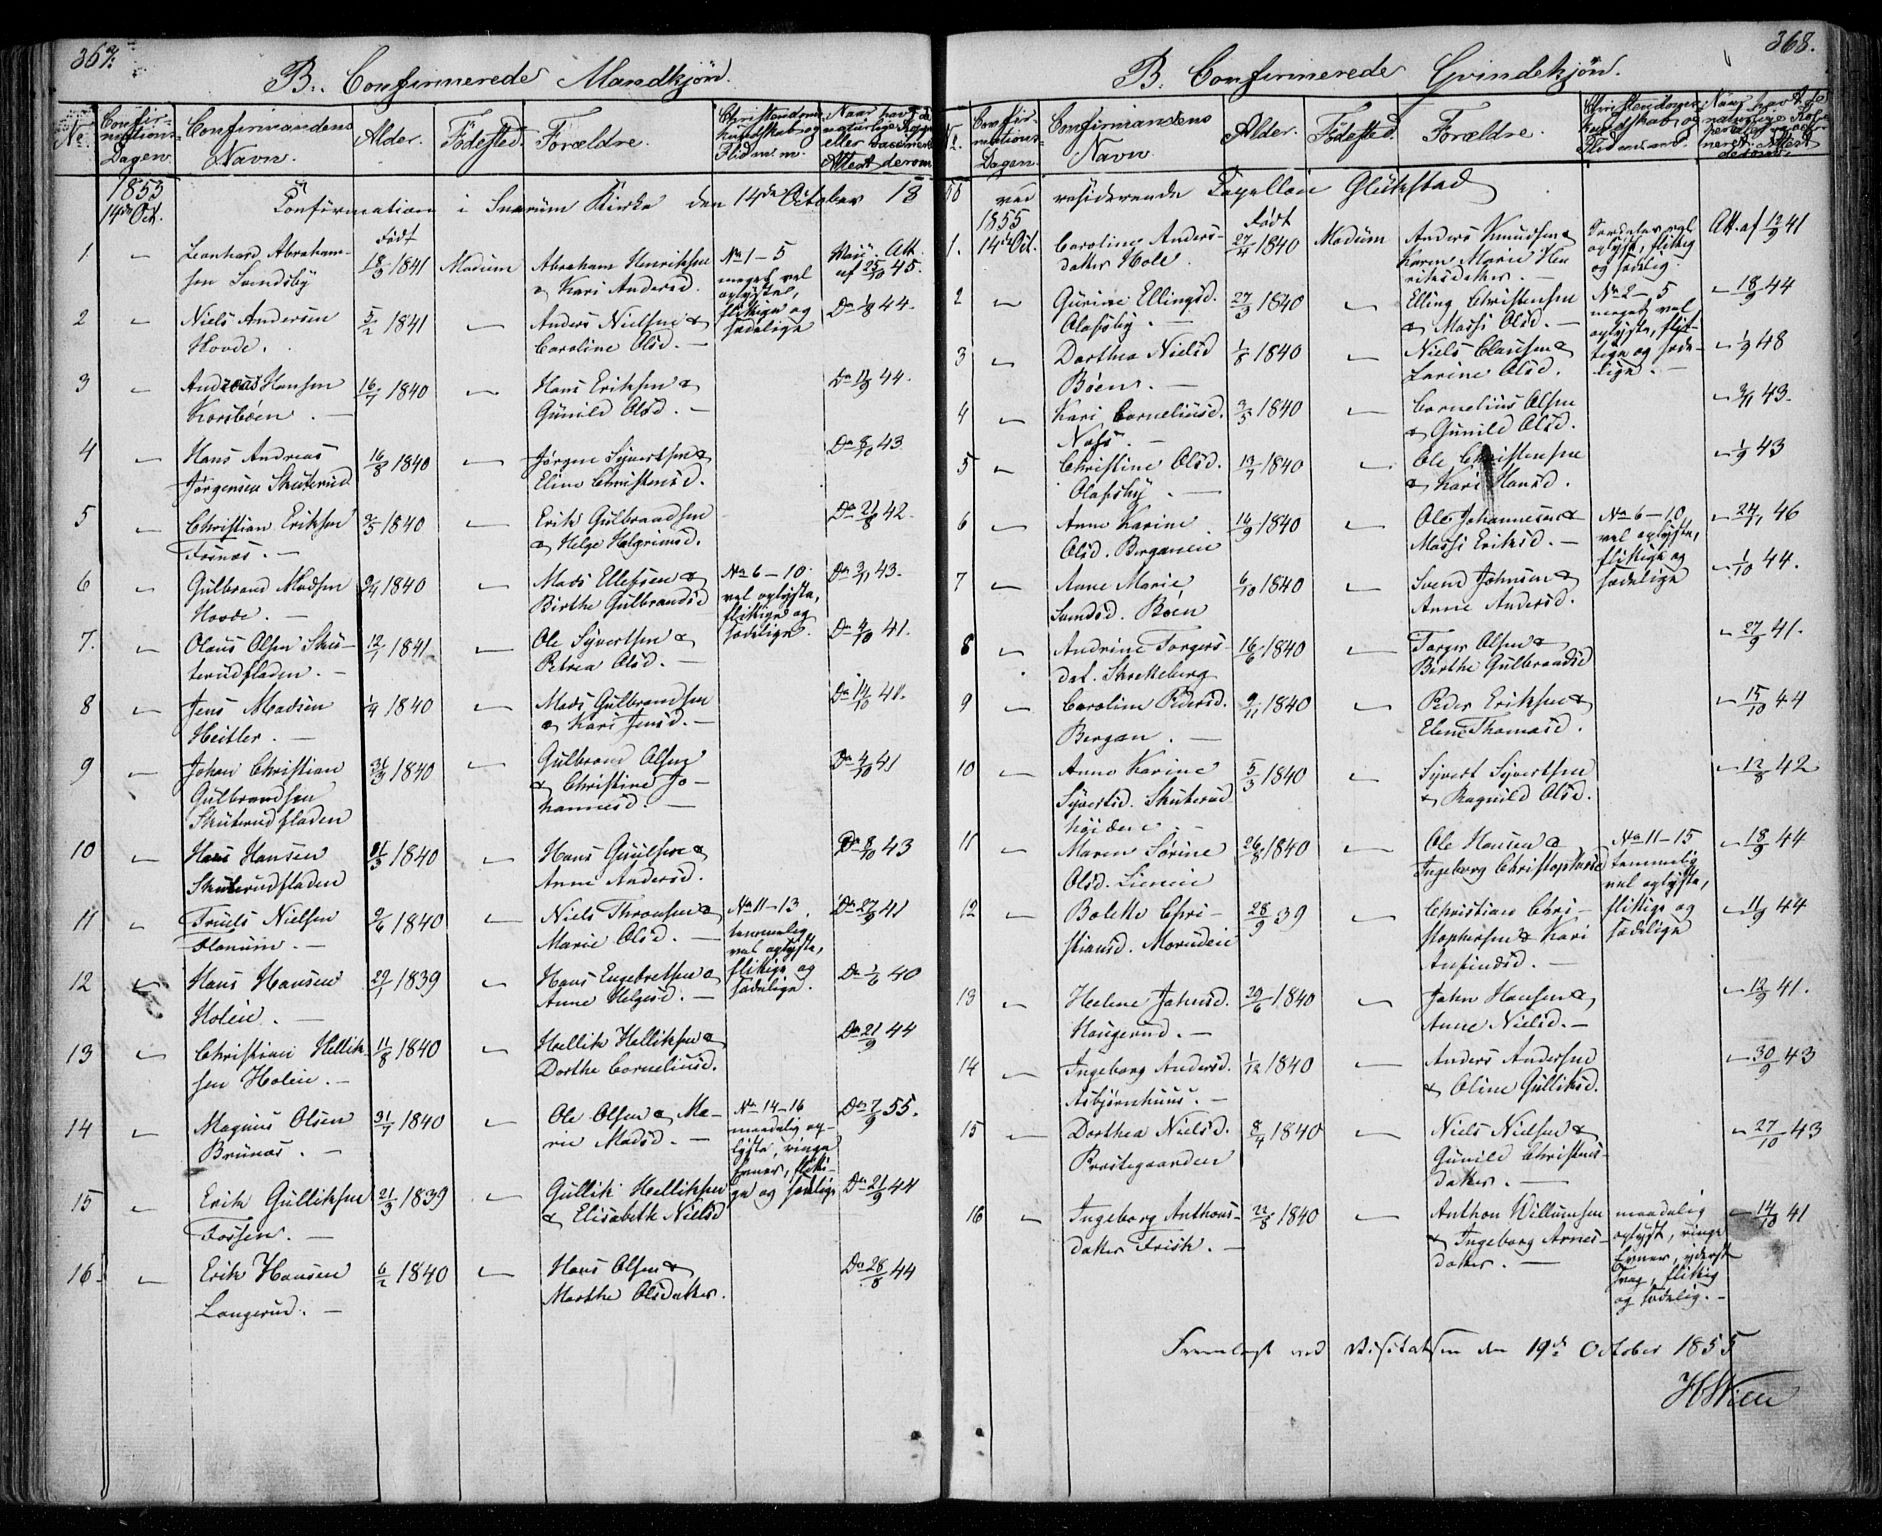 367.
B. Confirmerede Mandkjøn.
No. Confirmations-Dagen. Confirmandens Navn. Alder. Fødested. Forældre. Christendoms kundskab og Flid m. m. Naar havt de naturlige Kopper eller vaccineret Attest derom
1853 14de Oct.
Confirmation i Snarum Kirke den 14de October 18
Født
1 Leonhard Abraham- 18/3 1841 Modum Abraham Henriksen No 1-5 Att.
sen Svendsby & Kari Andersd. meget vel oplyste, flittige og sædelige af 25/10 45.
2 " Niels Andersen 5/2 1841 " Anders Nielsen & Do 1/8 44.
Hovde. Caroline Olsd.
3 " Andreas Hansen 16/7 1840 " Hans Eriksen & Do 11/9 44.
Korsbøen. Gunild Olsd.
4 " Hans Andreas 16/8 1840 " Jørgen Syvertsen & Do 8/10 43
Jørgensen Skuterud Eline Christensd.
5 " Christian Eriksen 1840 " Erik Gulbrandsen Do 21/8 42.
Fosnæs. & Helge Helgrimsd.
6 " Gulbrand Madsen 1840 " Mads Ellefsen & No 6-10 Do 43.
Hovde. Birthe Gulbrandsd vel oplyste, flittige og sædelige.
7. " Olaus Olsen Sku- 12/1 1841 " Ole Syvertsen & Do 4/10 41.
terudfladen. Petrea Olsd.
8 " Jens Madsen 1/4 1840 " Mads Gulbrandsen Do 14/10 41.
Heitler. & Kari Jensd.
9 " Johan Christian 31/3 1840 " Gulbrand Olsen Do 4/10 41
Gulbrandsen & Christine Jo-
Skuterudfladen hannesd.
10 " Hans Hansen 31/3 1840 " Hans Guulsen & Do 8/10 43
Skuterudfladen Anne Andersd.
11 " Truels Nielsen 2/6 1840 " Niels Thronsen & No 11-13 Do 27/9 41
Flønum. Marie Olsd. temmelig vel oplyste, flittige og sædelige.
12 " Hans Hansen 22/1 1839 " Hans Engebretsen & Do 1/6 40
Holen. Anne Helgesd.
13 " Christian Hellik- 11/8 1840 " Hellik Helliksen & Do 21/9 44
sen Holen. Dorthe Corneliusd.
14 " Magnus Olsen 31/7 1840 " Ole Olsen & Ma- No 14-16 Do 7/9 55.
Brunæs. rie Madsd. maadelig op-
lyste, ringe Evner, flitti-
15 " Erik Gulliksen 21/3 1839 " Gullik Helliksen ge og sædelige Do 21/9 44
Fossen. & Elisabeth Nielsd
16. " Erik Hansen 6/2 1840 " Hans Olsen & Do 28/8 44
Langerud. Marthe Olsdatter.
368.
B. Confirmerede Qvindekjøn.
No. Confirmations-Dagen. Confirmandens Navn. Alder. Fødested. Forældre. Christendoms kundskab og Flid m. m. Naar havt de naturlige Kopper eller vaccineret. Attest derom.
55 ved residerende Capellan Glükstad
1855 Født
1. 14de Oct. Caroline Anders- 27/4 1840 Modum Anders Knudsen & Særdeles vel Att. af 12/9 41
datter Hole Karen Marie Hen- oplyst, flittig
riksdatter. og sædelig.
2 " Gurine Ellingsd. 27/3 1840 " Elling Christensen No 2-5 " 18/9 44
Olafsby. & Massi Olsd. meget vel oplyste, flit-
3 " Dorthea Nielsd 1/8 1840 " Niels Clausen & tige og sæde- " 1/9 48
Bøen. Larine Olsd. lige.
4 " Kari Corneliusd. 3/5 1840 " Cornelius Olsen " 43.
Næss. & Gunild Olsd.
5 " Christine Olsd. 13/7 1840 " Ole Christensen " 1/9 43
Olafsby. & Kari Hansd.
6 " Anne Karine 16/9 1840 " Ole Johannesen & No 6-10 " 24/7 46
Olsd. Berganeie Massi Eriksd. vel oplyste, flittige og
7 " Anne Marie 6/10 1840 " Svend Johnsen & sædelige " 1/10 44.
Svendsd. Bøen Anne Andersd.
8 " Andrine Torgers- 16/6 1840 " Torger Olsen & " 27/9 41.
dat. Skrekkeberg Berthe Gulbrandsd
9 " Caroline Pedersd. 9/11 1840 " Peder Eriksen & " 15/10 44
Bergan. Elene Thomasd.
10 " Anne Karine 5/3 1840 " Syvert Syvertsen " 12/8 42
Syvertsd. Skuterud & Ragnild Olsd.
høiden.
11 " Maren Sørine 26/8 1840 " Ole Hansen & No 11-15 " 18/9 44
Olsd. Lieneie Ingeborg Christophersd temmelig vel oplyste,
12 " Bolette Chri- 28/9 39 " Christian Chri- flittige og " 11/9 44
stiansd. Morudeie stophersen & Kari sædelige
Anfindsd.
13 " Helene Johnsd. 20/6 1840 " John Hansen & " 12/9 41.
Haugerud. Anne Nielsd.
14 " Ingeborg Andersd. 1/12 1840 " Anders Andersen " 30/9 43
Asbjørnhuus. & Oline Gulliksd.
15 " Dorthea Nielsd. 8/4 1840 " Niels Nielsen & " 27/10 43
Præstegaarden Gunild Christens-
datter.
16 " Ingeborg Anthons- 22/8 1840 " Anthon Willumsen maadelig " 14/10 41
datter Frisk. & Ingeborg Arnes- oplyst, ringe
datter. Evner, yderst
svag, flittig
og sædelig.
Fremlagt ved Visitatsen den 19de October 1855